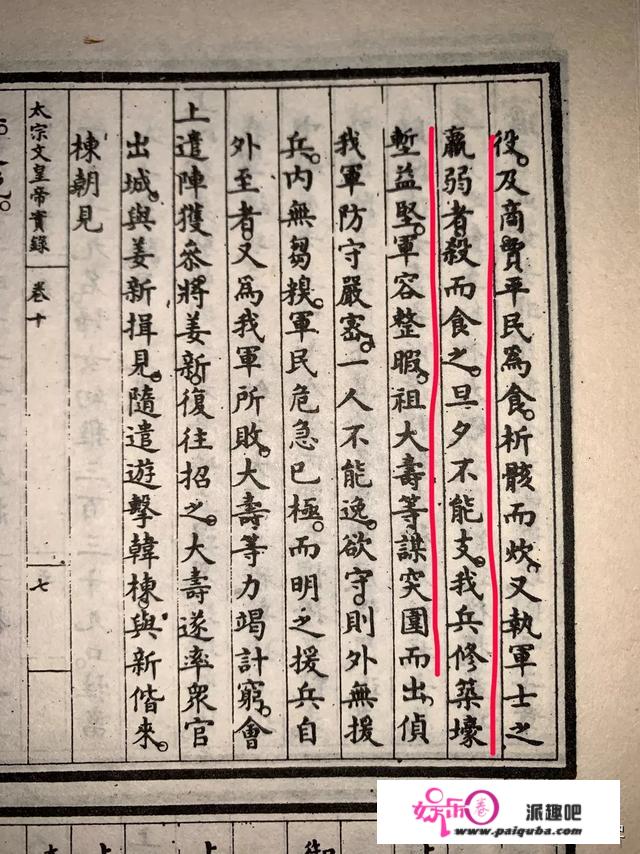 役。及商賈平民為食。析骸而炊。又執軍士之
羸弱者殺而食之。旦夕不能支。我兵修築壕
塹益堅。軍容整暇。祖大壽等謀突圍而出。偵
我軍防守嚴密。一人不能逸。欲守。則外無援
兵。內無芻糗。軍民危急已極。而明之援兵自
外至者。又為我軍所敗。大壽等力竭計窮。會
上遣陣獲叅將姜新。復往招之。大壽遂率眾官
出城。與姜新揖見。隨遣遊擊韓棟。與新偕來。
棟朝見
太宗文皇帝實錄 卷十 七
娛乐圈 派趣吧
www.paiquba.com